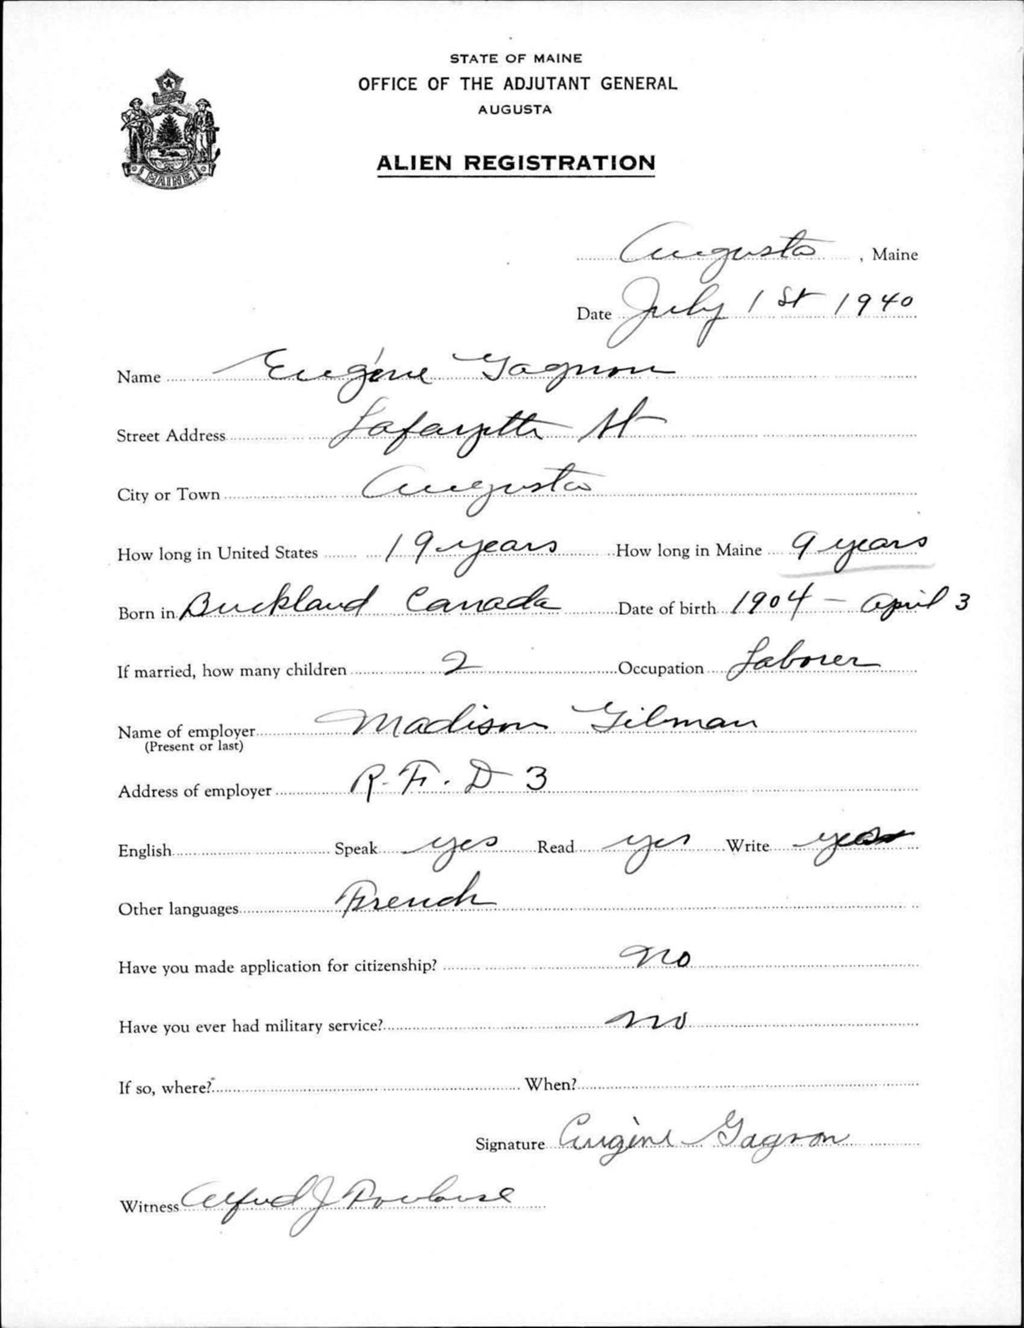 STATE OF MAINE
OFFICE OF THE ADJUTANT GENERAL
AUGUSTA
ALIEN REGISTRATION
MAINE
Augusta, Maine
Date July 1st 1940
Name Eugéne Gagnon
Street Address Lafayette St
City or Town Augusta
How long in United States 19 years How long in Maine 9 years
Born in Buckland Canada Date of birth 1904 - April 3
If married, how many children 2 Occupation Laborer
Name of employer Madison Gilman
(Present or last)
Address of employer R.F.D 3
English Speak yes Read yes Write yes
Other languages French
Have you made application for citizenship? no
Have you ever had military service? no
If so, where? When?
Signature Eugène Gagnon
Witness Alfred J